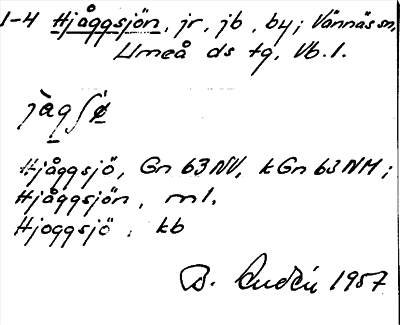 1-4 Hjåggsjön, jr, jb, by; Vännäs sn,
Umeå ds tg, Vb. l.
Hjåggsjö, Gn 63 NV, kGn 63 NM;
Hjåggsjön, ml.
Hjoggsjö, kb
B. 1957